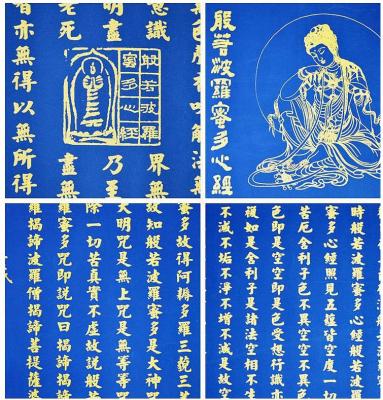 意識界無
明盡乃至
老死盡無
亦無得以無所得
般若波羅
蜜多心經
般若波羅蜜多心經
蜜多故得阿耨多羅三藐三
故知般若波羅蜜多是大神咒
大明咒是無上咒是無等等咒
除一切苦真實不虛故說般若
羅蜜多咒即說咒曰揭諦揭諦
羅揭諦波羅僧揭諦菩提薩婆
時般若波羅蜜多心經般若
蜜多心經照見五蘊皆空度一切
苦厄舍利子色不異空空不異色
色即是空空即是色受想行識亦
復如是舍利子是諸法空相不生
不滅不垢不淨不增不減是故空